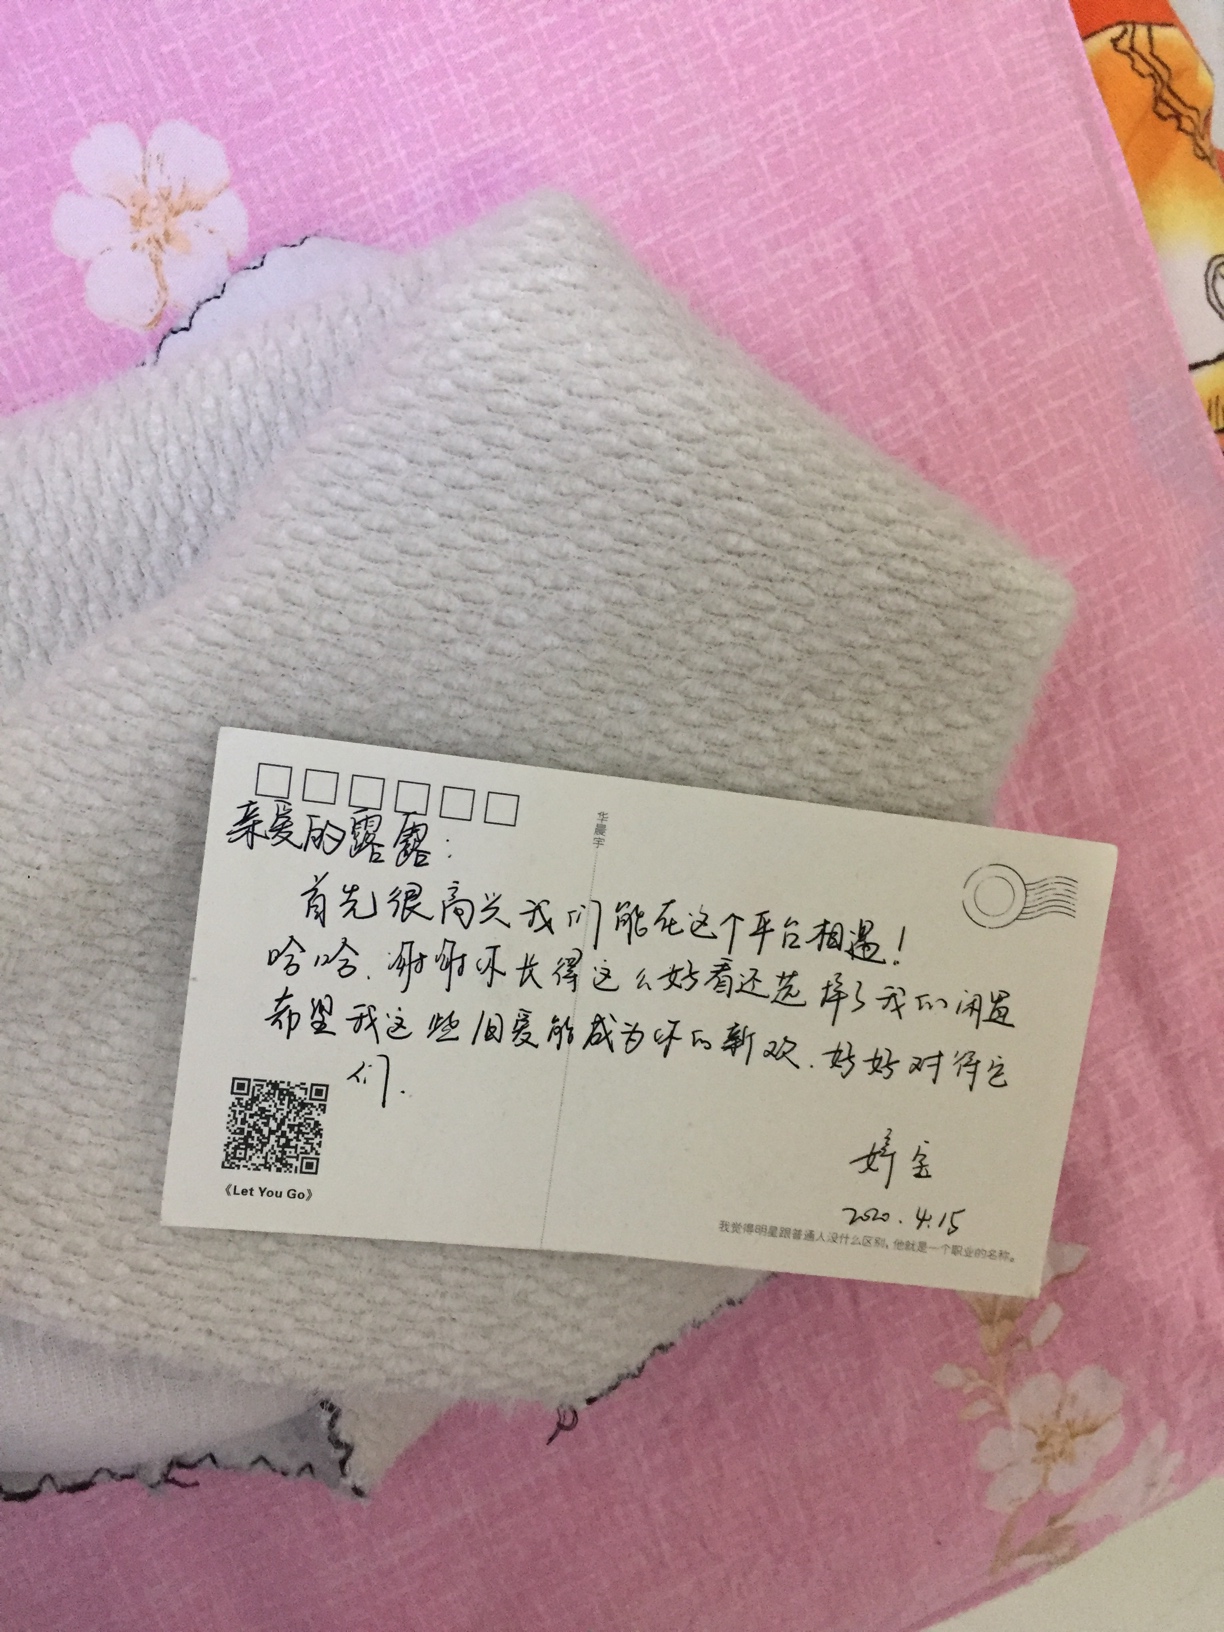 亲爱的露露：
华晨宇
首先很高兴我们能在这个平台相遇！
哈哈、谢谢你长得这么好看还选择了我的闲置
希望我这些旧爱能成为你的新欢、好好对待它
们.
婷宝
2020.4.15
《Let You Go》
我觉得明星跟普通人没什么区别，他就是一个职业的名称。